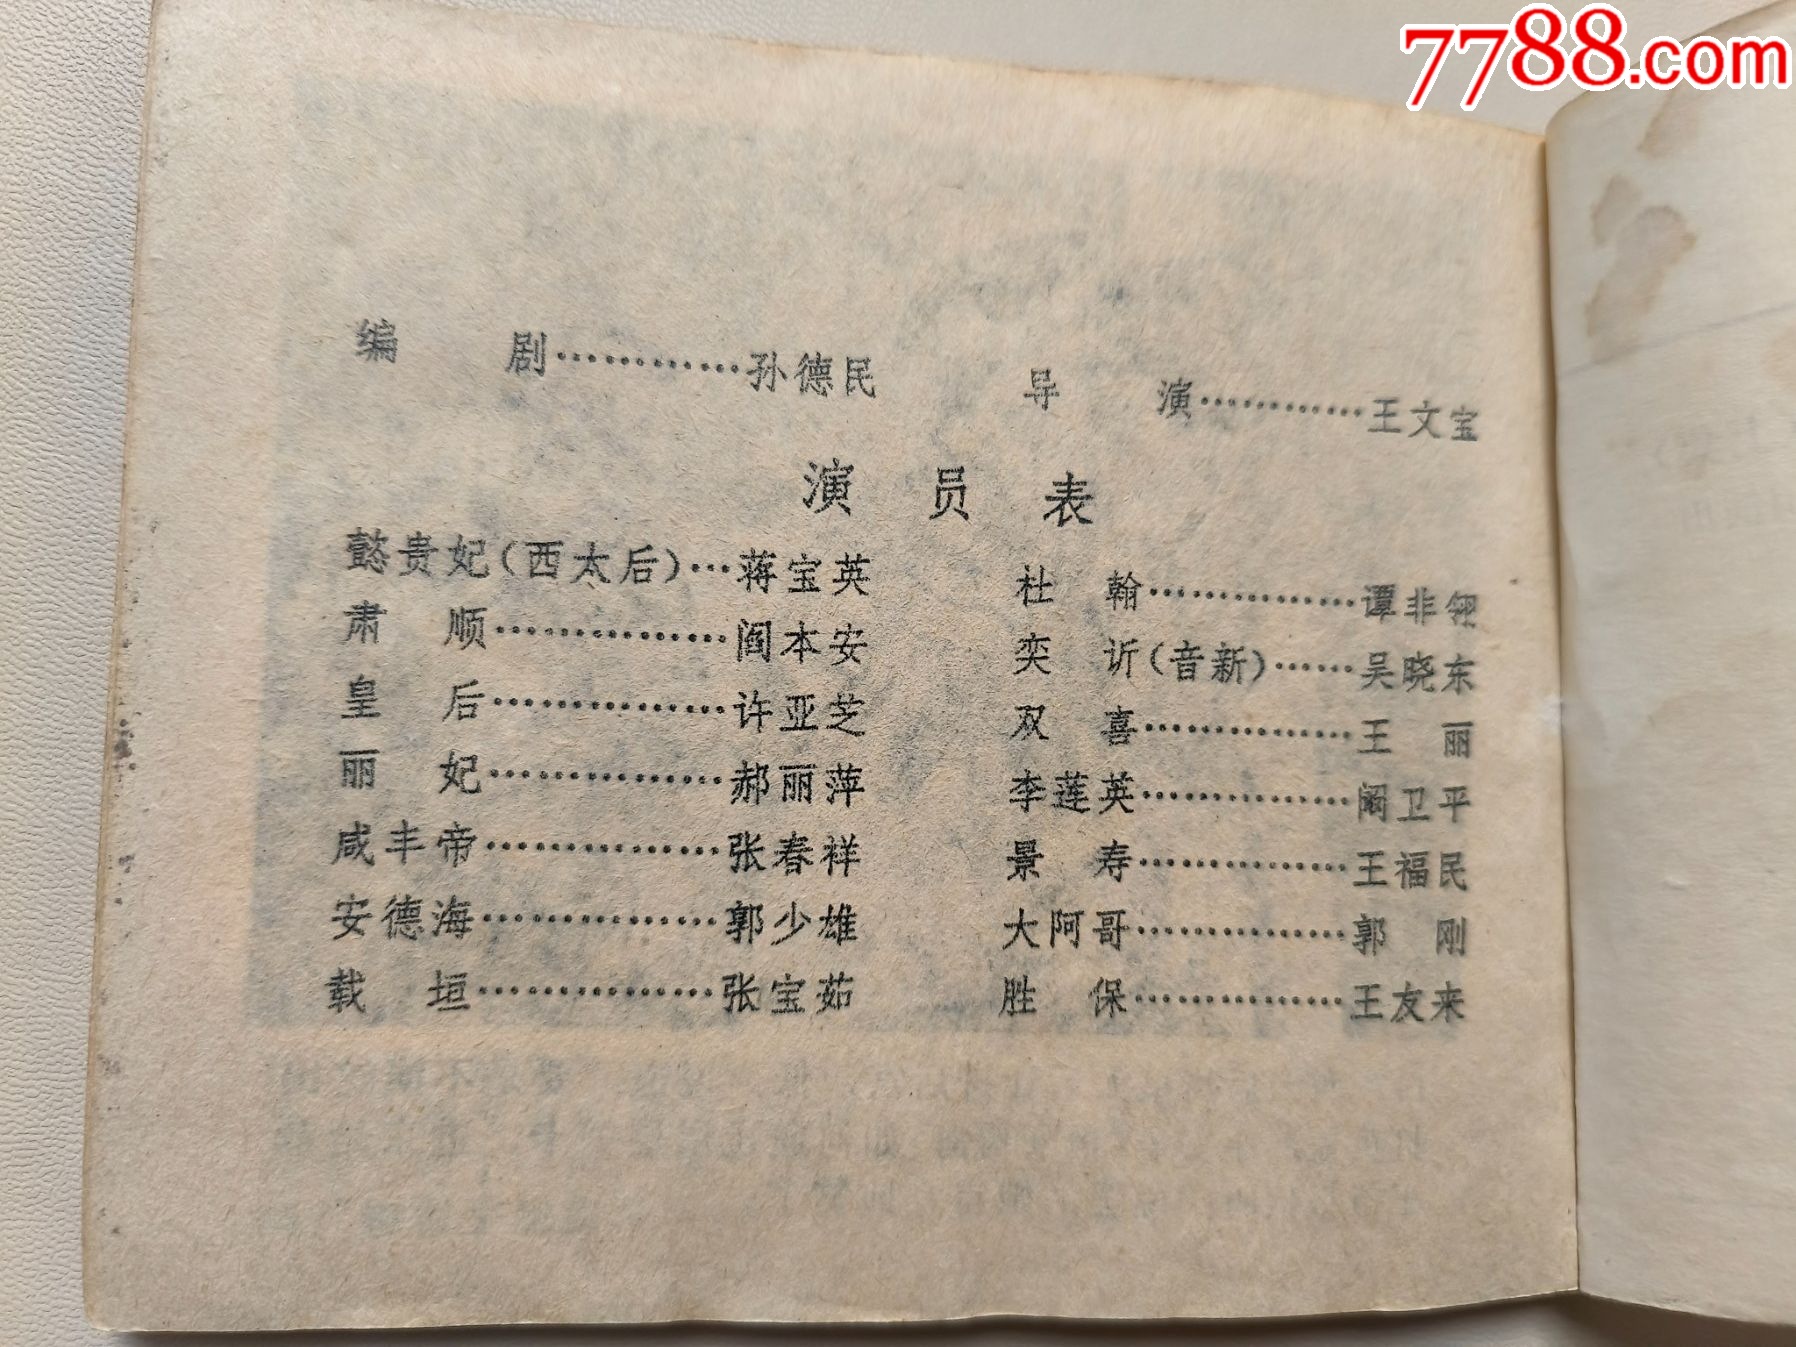 7788.com
编剧…………孙德民 导演…………王文宝
演员表
懿贵妃(西太后)…蒋宝英 杜翰……………谭非翎
肃顺……………阎本安 奕䜣(音新)……吴晓东
皇后……………许亚芝 双喜……………王丽
丽妃……………郝丽萍 李莲英……………阚卫平
咸丰帝……………张春祥 景寿……………王福民
安德海……………郭少雄 大阿哥……………郭刚
载垣……………张宝茹 胜保……………王友来